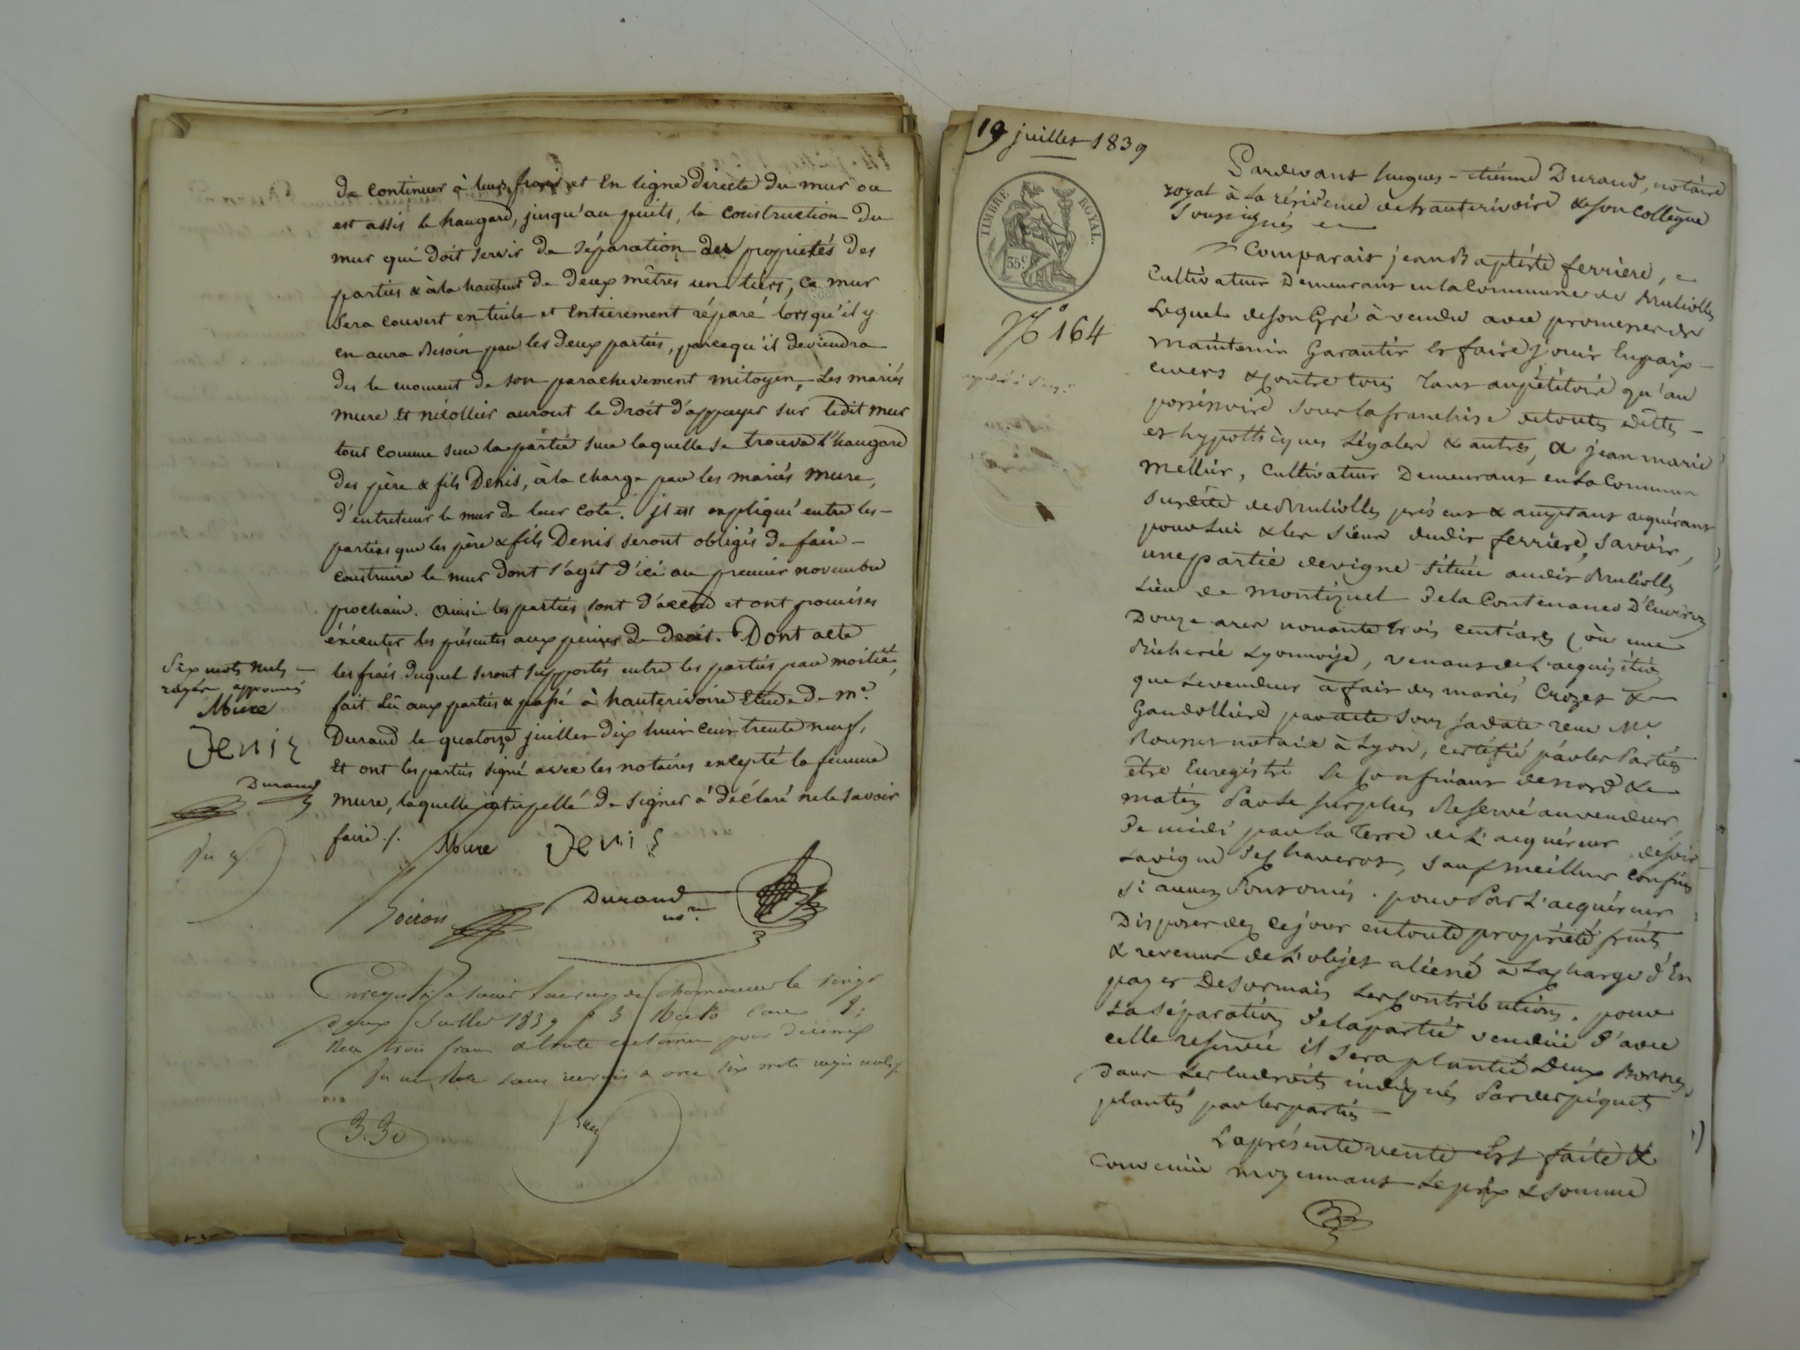 de continuer à leurs frais et en ligne directe du mur ou
est assis le hangard, jusqu'au puits, la construction du
mur qui doit servir de séparation des propriétés des
parties & à la hauteur de deux mètres un tiers, ce mur
sera couvert en tuile et entièrement réparé lorsqu'il y
en aura besoin par les deux parties, parcequ'il deviendra
dès le moment de son parachevement mitoyen, Les mariés
mure et nicollier auront le droit d'appuyer sur ledit mur
tout comme sur la partie sur laquelle se trouve l'hangard
des père & fils Denis, à la charge par les mariés mure,
d'entretenir le mur de leur coté. il est expliqué entre les
parties que les père & fils Denis seront obligés de faire
construire le mur dont s'agit d'ici au premier novembre
prochain. ainsi les parties sont d'accord et ont promises
éxécuter les présentes aux peines de droit. Dont acte
les frais duquel seront supportés entre les parties par moitié,
fait Lû aux parties & passé à hauterivoire Etude de me.
Durand le quatorze juillet dix huit cent trente neuf,
Et ont les parties signé avec les notaires excepté la femme
mure, laquelle interpellé de signer a déclaré ne le savoir
faire ./.
Mure Denis
Six mots nuls
rayés approuvés
Mure
Denis
Durand
Durand
nre
Enregistré à Saint Laurent de Chamousset le vingt
deux Juillet 1839
Reçu trois francs & trente centimes pour décimes
six mots rayés nuls
3.30
19 juillet 1839
TIMBRE ROYAL.
35c
No 164
Pardevant hugues-étienne Durand, notaire
royal à la résidence de hauterivoire & son collègue
soussignés
Comparait jean Baptiste ferriere,
Cultivateur Demeurant en la Commune de Brullioles
Lequel de son Gré à vendu avec promesse de
maintenir Garantir et faire jouir En paix
envers & contre tous tant au pétitoire qu'au
possessoire sous la franchise de toutes dettes
et hypothèques Légales & autres, à jean marie
mellier, Cultivateur Demeurant en la Commune
susdite de Brullioles présent & acceptant acquérant
pour Lui & les siens dudit ferriere, savoir,
une partie de vigne située audit Brullioles
Lieu de montizuel de la Contenance D'Environ
Douze ares nonante trois centiares (où une
Bicherée Lyonnoise, venant de L'acquisition
que Le vendeur à fait des mariés Crozet &
Gandolliere par acte sous sa date reçu Me.
notaire à Lyon, certifié par les Parties
être Enregistré Se confinant de nord &
matin Par Le surplus Reservé au vendeur
De midi par La Terre de L'acquéreur, de soir
La vigne des haveros, sauf meilleurs confins
si aucuns sont omis. pour Par L'acquéreur
Disposer dez ce jour en toute propriété fruits
& revenus de L'objet aliéné à La charge d'En
payer Desormais Les contributions. pour
La séparation de la partie vendüe d'avec
celle reservée il sera planté Deux Bornes
dans Les Endroits indiqués Par des piquets
plantés par les parties
La présente vente Est faite &
Convenüe moyennant Le prix & somme